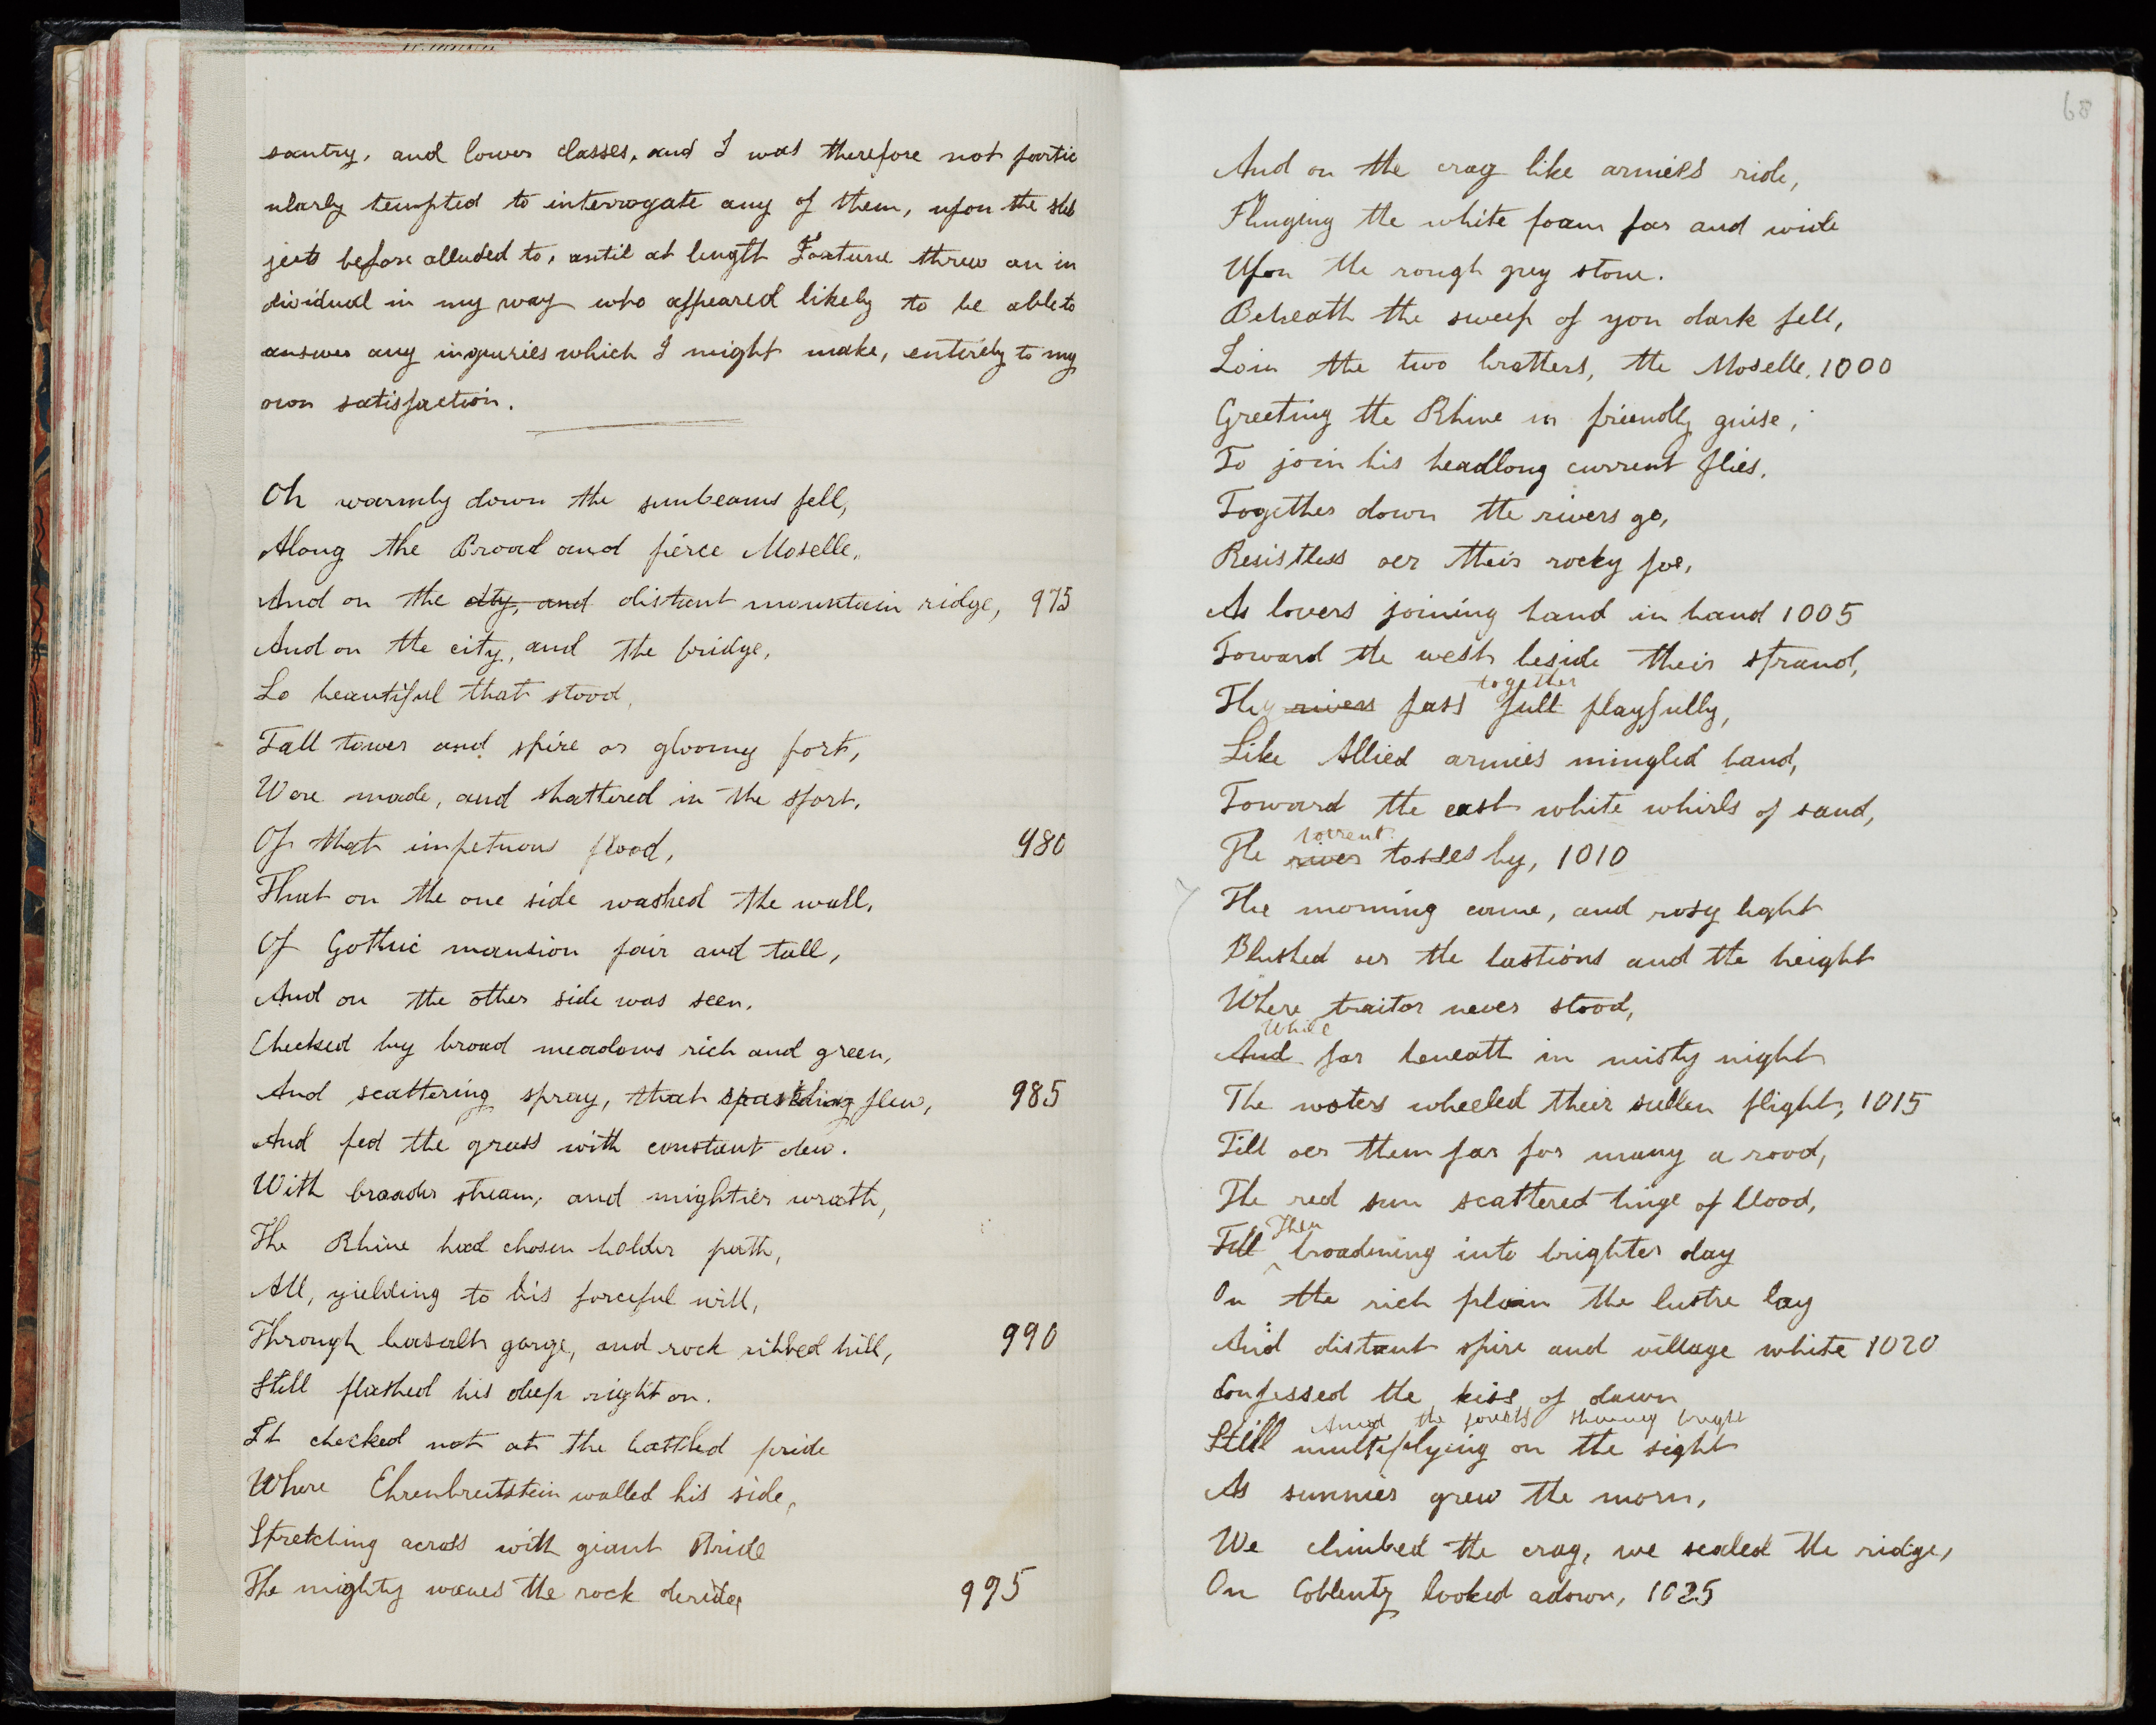 santry, and lower classes, and I was therefore not partic
ularly tempted to interrogate any of them, upon the sub
ject before alluded to, until at length Fortune threw an in
dividual in my way who appeared likely to be able to
answer any inquiries which I might make, entirely to my
own satisfaction.
Oh warmly down the sunbeams fell,
Along the Broad and fierce Moselle.
And on the city, and distant mountain ridge, 975
And on the city, and the bridge,
So beautiful that stood,
Tall tower and spire or gloomy fort,
Were made, and shattered in the sport,
Of that impetuous flood, 980
That on the one side washed the wall,
Of Gothic mansion fair and tall,
And on the other side was seen,
Checked by broad meadows rich and green,
And scattering spray, that sparkling flew, 985
And fed the grass with constant dew.
With broader stream, and mightier wrath,
The Rhine had chosen bolder path,
All, yielding to his forceful will,
Through basalt gorge, and rock ribbed hill, 990
Still flashed his deep right on.
It checked not at the battled pride
Where Ehrenbreitstein walled his side,
Stretching across with giant stride
The mighty waves the rock deride, 995
68
And on the crag like armies ride,
Flinging the white foam far and wide
Upon the rough grey stone.
Beneath the sweep of yon dark fell,
Join the two brothers, the Moselle, 1000
Greeting the Rhine in friendly guise,
To join his headlong current flies.
Together down the rivers go,
Resistless oer their rocky foe,
As lovers joining hand in hand 1005
Toward the west beside their strand,
together
They rivers pass full playfully,
Like Allied armies mingled band,
Toward the east white whirls of sand,
torrent
The river tosses by, 1010
The morning came, and rosy light
Blushed oer the bastions and the height
Where traitor never stood,
While
And far beneath in misty night
The waters wheeled their sullen flight, 1015
Till oer them far for many a rood,
The red sun scattered tinge of blood,
Then
Till broadening into brighter day
On the rich plain the lustre lay
And distant spire and village white 1020
Confessed the kiss of dawn
Amid the forests shining bright
Still multiplying on the sight
As sunnier grew the morn,
We climbed the crag, we scaled the ridge,
On Coblentz looked adown, 1025